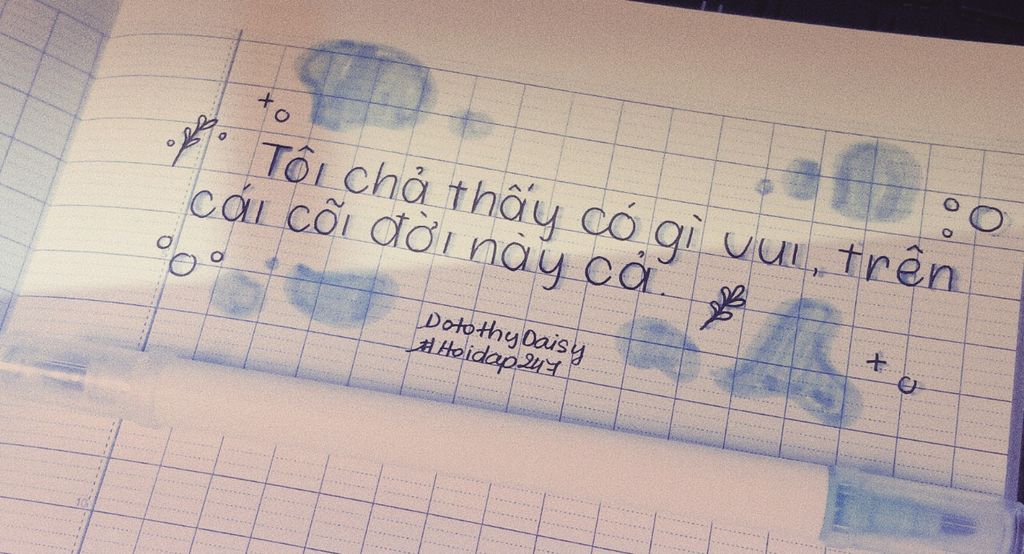 Tôi chả thấy có gì vui, trên
cái cõi đời này cả.
DotothyDaisy
#Hoidap247
10